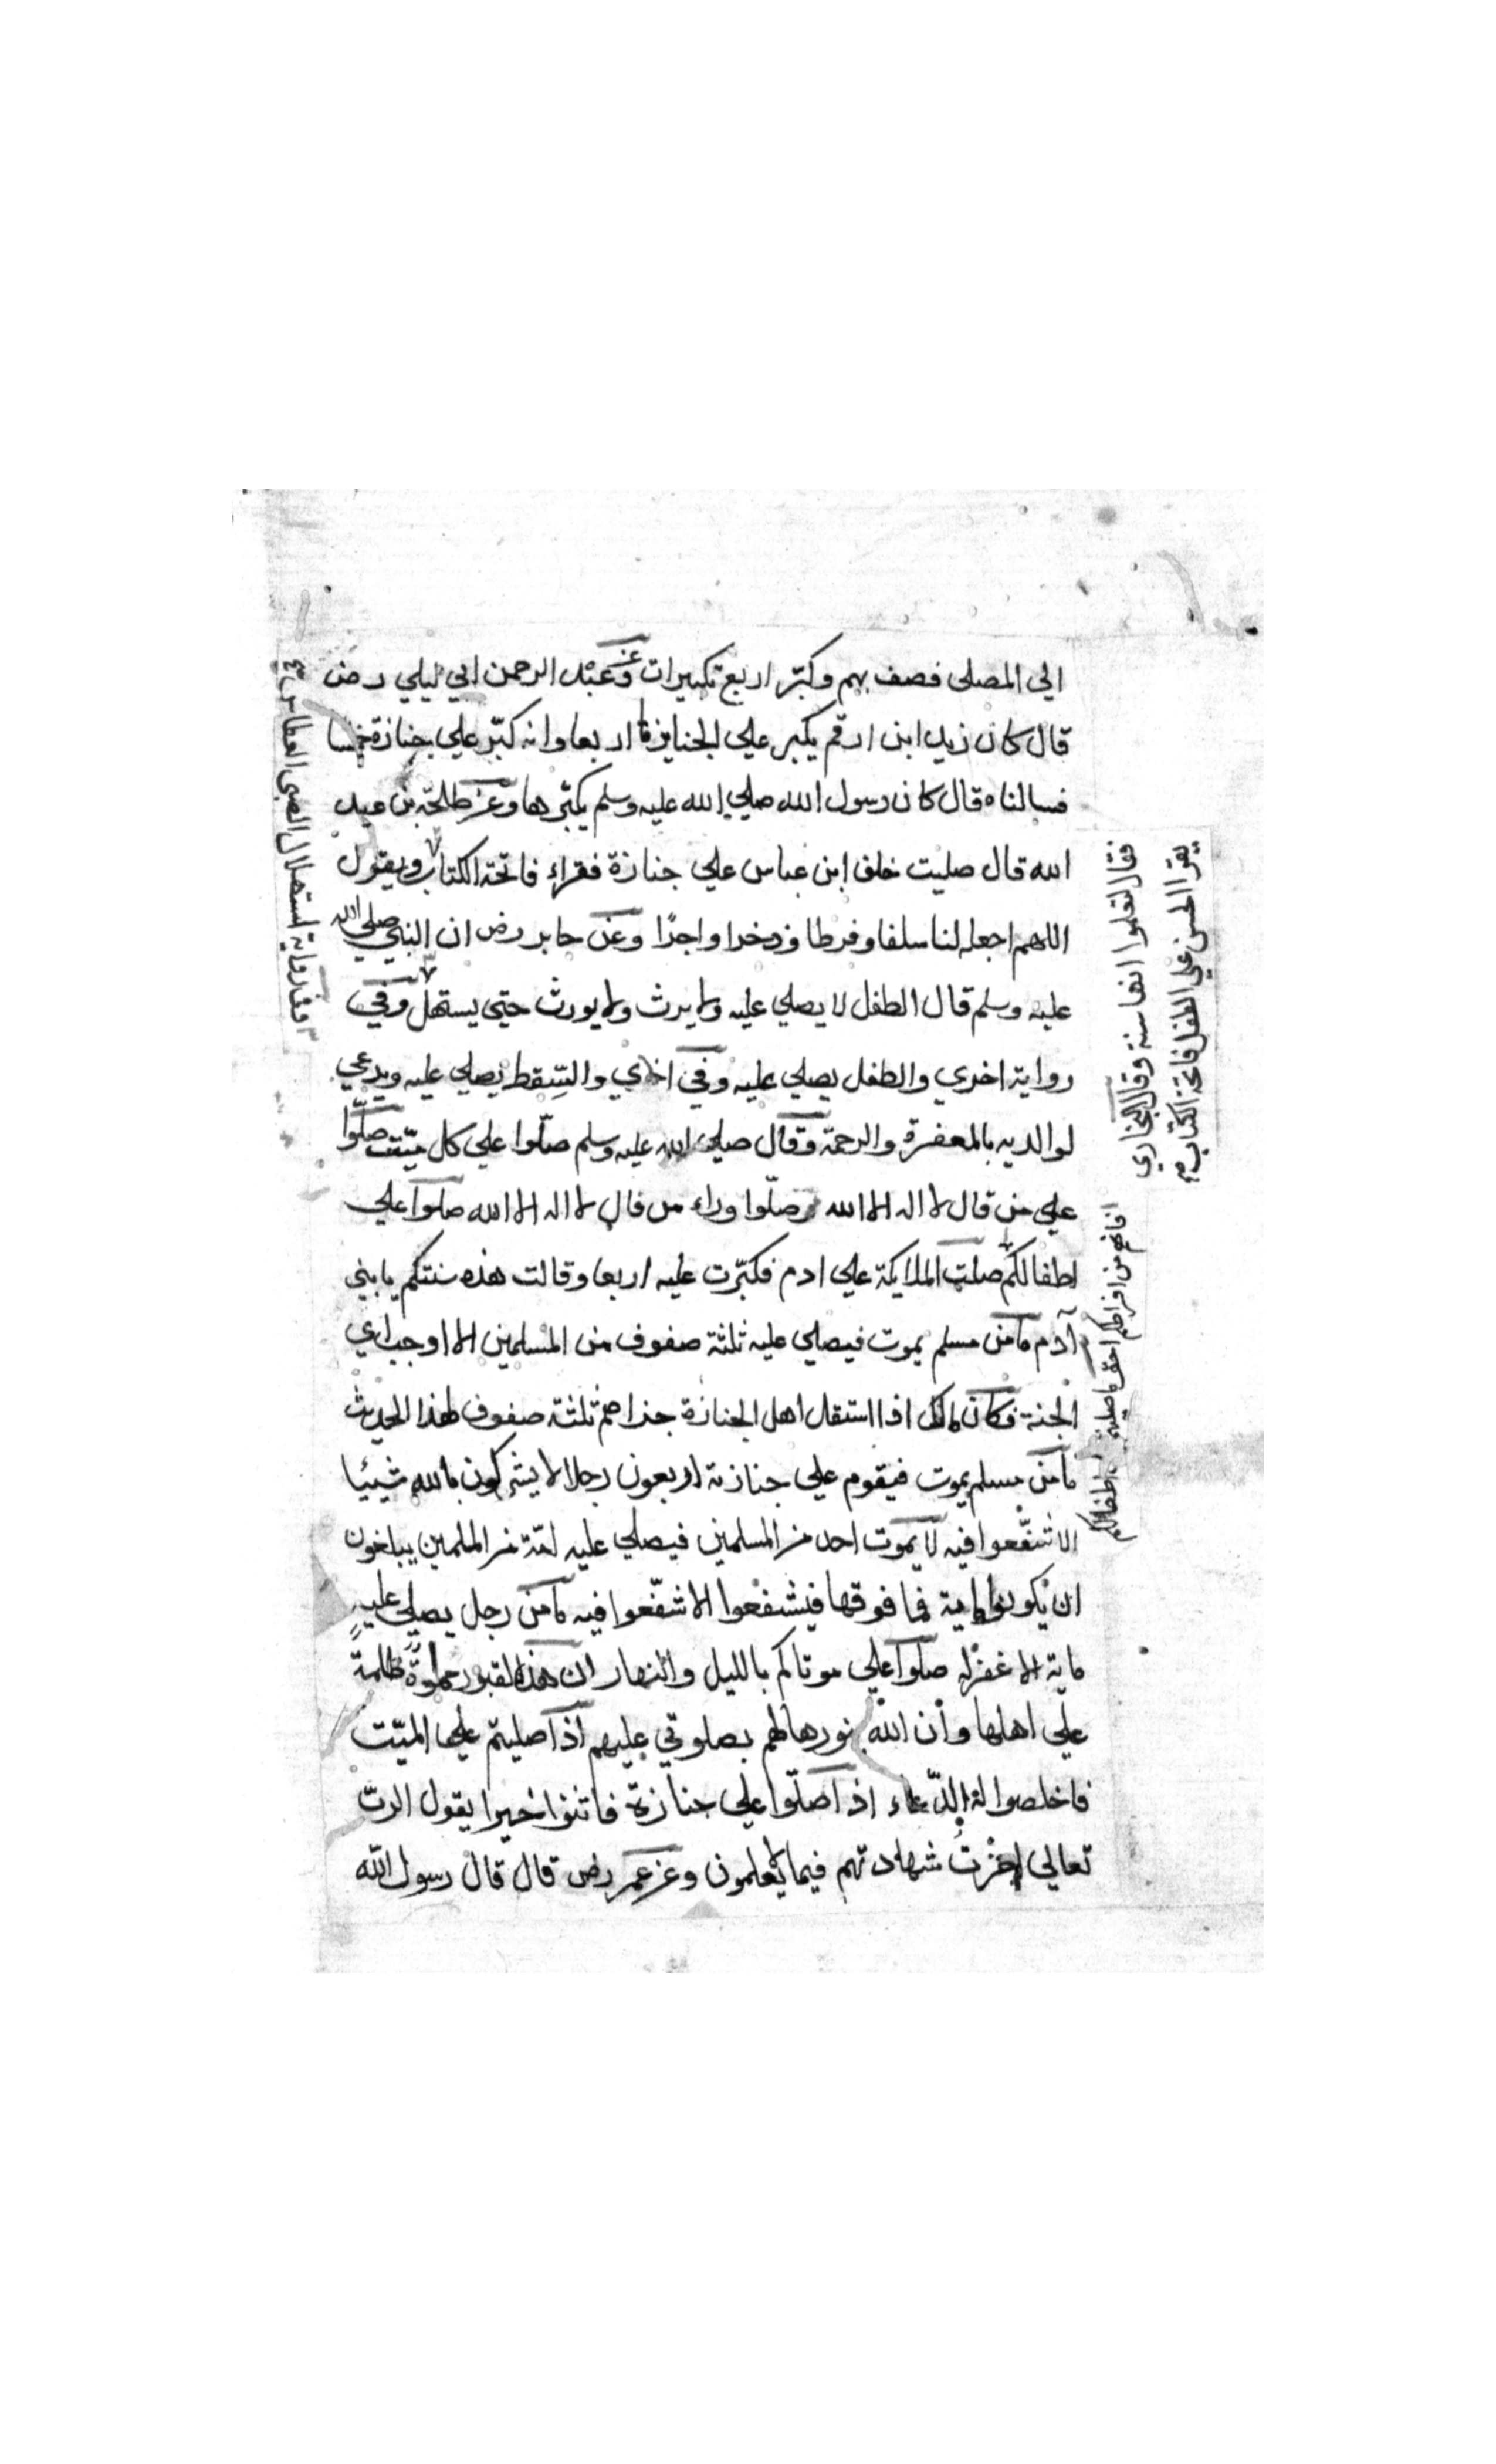 الي المصلى فصف بهم وكبّر اربع تكبيرات وعن عبد الرحمن ابي ليلي رض
قال كان زيد ابن ارقم يكبر علي الجنايز اربعا وانه كبّر علي جنازة خمسا
فسالناه قال كان رسول الله صلي الله عليه وسلم يكبّرها وعن طلحة بن عبد
الله قال صليت خلف ابن عباس علي جنازة فقراء فاتحة الكتاب ويقول
اللهم اجعله لنا سلفا وفرطا وذخرا واجرًا وعن جابر رض ان النبي صلي الله
عليه وسلم قال الطفل لا يصلي عليه ولا يرث ولا يورث حتي يستهل وفي
رواية اخري والطفل يصلي عليه وفي اخري والسِّقط يصلي عليه ويدعي
لوالديه بالمغفرة والرحمة وقال صلي الله عليه وسلم صلّوا علي كل ميّت صلّوا
علي من قال لا اله الا الله وصلّوا وراء من قال لا اله الا الله صلوا علي
اطفالكم صلت الملايكة علي ادم فكبّرت عليه اربعا وقالت هذه سنتكم يا بني
آدم ما من مسلم يموت فيصلي عليه ثلثة صفوف من المسلمين الا اوجب اي
الجنة فكان مالك اذا استقل اهل الجنازة جزاهم ثلثة صفوف لهذا الحديث
ما من مسلم يموت فيقوم علي جنازته اربعون رجلا لا يشركون بالله شيئا
الا شفّعوا فيه لا يموت احد من المسلمين فيصلي عليه امّة من المسلمين يبلغون
ان يكونوا ماية فما فوقها فيشفعوا الا شفّعوا فيه ما من رجل يصلي عليه
ماية الا غفر له صلوا علي موتاكم بالليل والنهار ان هذه القبور مملوّة ظلمةً
علي اهلها وان الله نورها لهم بصلوتي عليهم اذا صليتم علي الميّت
فاخلصوا له الدّعاء اذا صلّوا علي جنازة فاثنوا خيرا يقول الربّ
تعالي اجزت شهادتهم فيما يعلمون وعن عمر رض قال قال رسول الله
فقال لتعلموا انها سنة وقال البخاري
يقرا الحسن علي الطفل فاتحة الكتاب
فانهم من افراطكم احق ما صليتم اطفالكم
وفي رواية استهلال الصبي العطاس